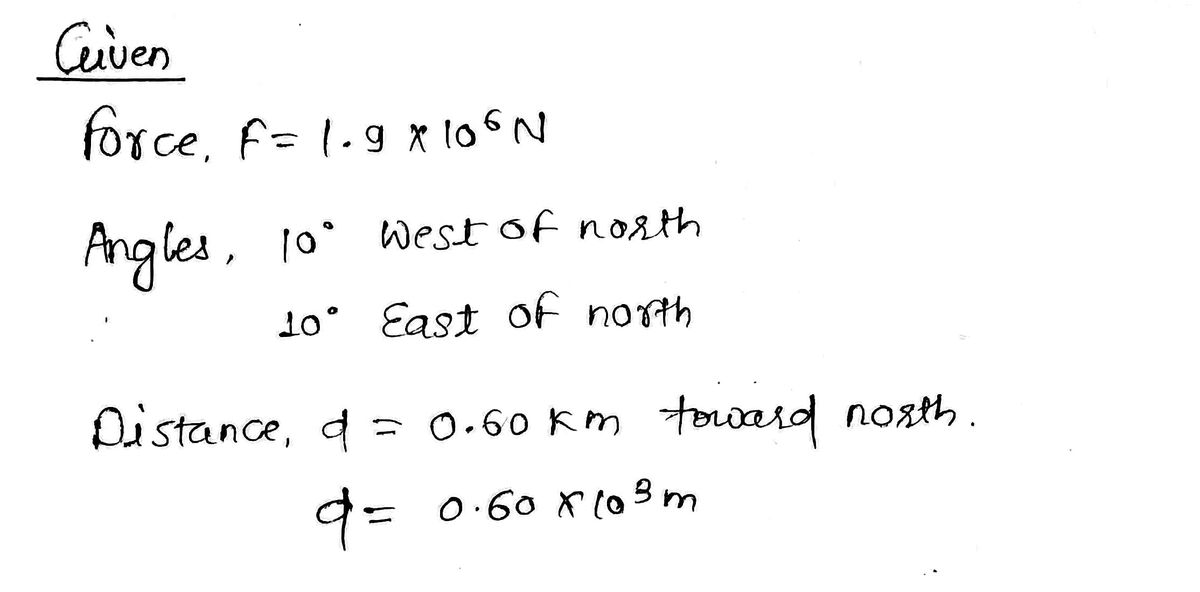 Given
force, F = 1.9 x 10⁶ N
Angles, 10° West of north
10° East of north
Distance, d = 0.60 km toward north.
d = 0.60 x 10³ m